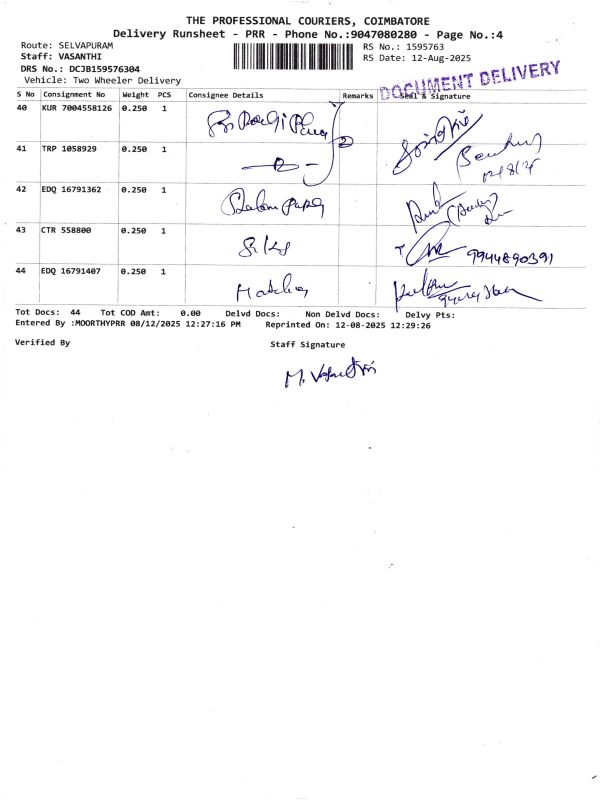 THE PROFESSIONAL COURIERS, COIMBATORE
Delivery Runsheet - PRR - Phone No.:9047080280 - Page No.:4
Route: SELVAPURAM
RS No.: 1595763
Staff: VASANTHI
RS Date: 12-Aug-2025
DRS No.: DCJB159576304
Vehicle: Two Wheeler Delivery
DOCUMENT DELIVERY
S No Consignment No Weight PCS Consignee Details Remarks Seal & Signature
40 KUR 7004558126 0.250 1
41 TRP 1058929 0.250 1
42 EDQ 16791362 0.250 1
43 CTR 558800 0.250 1 9944890391
44 EDQ 16791407 0.250 1
Tot Docs: 44 Tot COD Amt: 0.00 Delvd Docs: Non Delvd Docs: Delvy Pts:
Entered By :MOORTHYPRR 08/12/2025 12:27:16 PM Reprinted On: 12-08-2025 12:29:26
Verified By Staff Signature